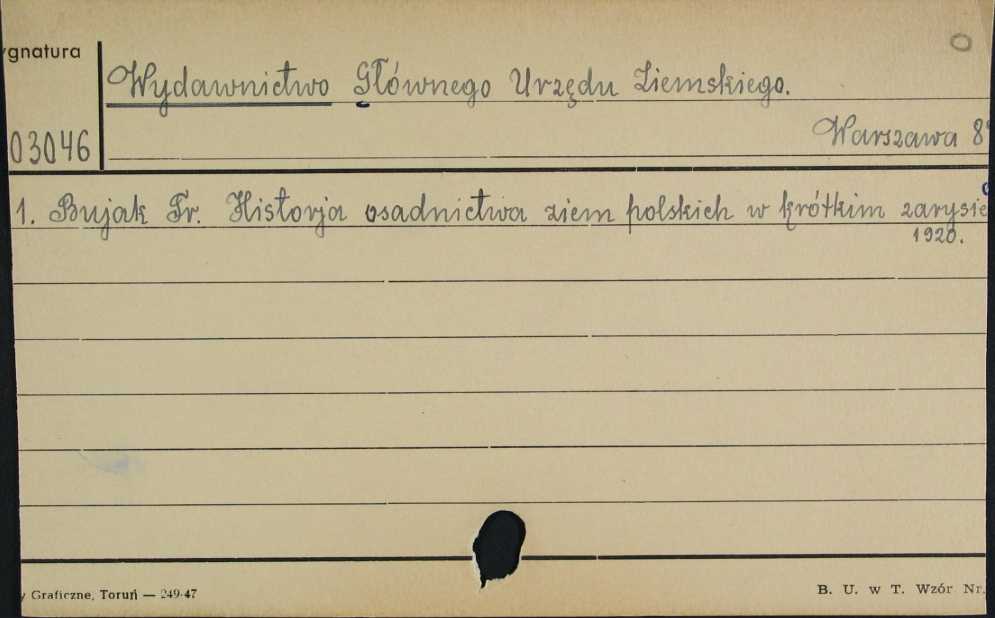 ygnatura
Wydawnictwo Głównego Urzędu Ziemskiego.
03046
Warszawa 8°
1. Bujak Fr. Historja osadnictwa ziem polskich w krótkim zarysie
1920.
y Graficzne, Toruń — 249-47
B. U. w T. Wzór Nr.